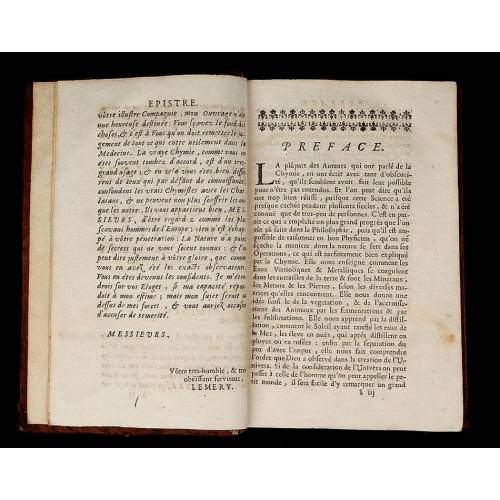 EPISTRE.
vôtre illustre Compagnie, mon Ouvrage n'ait
une heureuse destinée: Vous sçavez le fond des
choses, & c'est à Vous qu'on doit remettre le ju-
gement de tout ce qui entre utilement dans la
Medecine. La vraye Chymie, comme vous en
êtes souvent tombez d'accord, est d'un tres-
grand usage, & en cela vous êtes bien diffe-
rens de ceux qui par défaut de connoissance,
confondent les vrais Chymistes avec les Char-
latans, & ne peuvent non plus souffrir les uns
que les autre. Il vous appartient bien, MES-
SIEURS, d'être regardez comme les plus
sçavans hommes de l'Europe; rien n'est échap-
pé à vôtre pénétration: La Nature n'a point
de secrets qui ne vous soient connus: & l'on
peut dire justement à vôtre gloire, que comme
vous en avez été les exacts observateurs,
Vous en êtes devenus les confidens. Je m'éten-
drois sur vos Eloges, si ma capacité répon-
doit à mon estime; mais mon sujet seroit au
dessus de mes forces, & vous auriez occasion
d'accuser de temerité.
MESSIEURS,
Vôtre tres-humble, & tres-
obéïssant serviteur,
LEMERY.
PREFACE.
LA plûpart des Auteurs qui ont parlé de la
Chymie, en ont écrit avec tant d'obscuri-
té, qu'ils semblent avoir fait leur possible
pour n'être pas entendus. Et l'on peut dire qu'ils
ont trop bien réüssi, puisque cette Science a été
presque cachée pendant plusieurs siecles, & n'a été
connuë que de tres-peu de personnes. C'est en par-
tie ce qui a empêché un plus grand progrés que l'on
eût pû faire dans la Philosophie, puis qu'il est im-
possible de raisonner en bon Physicien, qu'on ne
sçache la maniere dont la nature se sert dans ses
Operations, ce qui est parfaitement bien expliqué
par la Chymie. Elle nous enseigne comment les
Eaux Vitrioliques & Metalliques se coagulent
dans les entrailles de la terre & font les Mineraux,
les Metaux & les Pierres, selon les diverses ma-
trices qu'elles rencontrent. Elle nous donne une
idée sensible de la vegetation, & de l'accroisse-
ment des Animaux par les fermentations & par
les sublimations. Elle nous apprend par la distil-
lation, comment le Soleil ayant rarefié les eaux de
la Mer, les éleve en nuës, qui aprés distillent en
pluyes ou en rosées: enfin par la separation du
pur d'avec l'impur, elle nous fait comprendre
l'ordre que Dieu a observé dans la creation de l'U-
nivers. Si de la consideration de l'Univers on peut
passer à celle de l'Homme qu'on peut appeller le
petit monde, il sera facile d'y remarquer un grand
ã iij